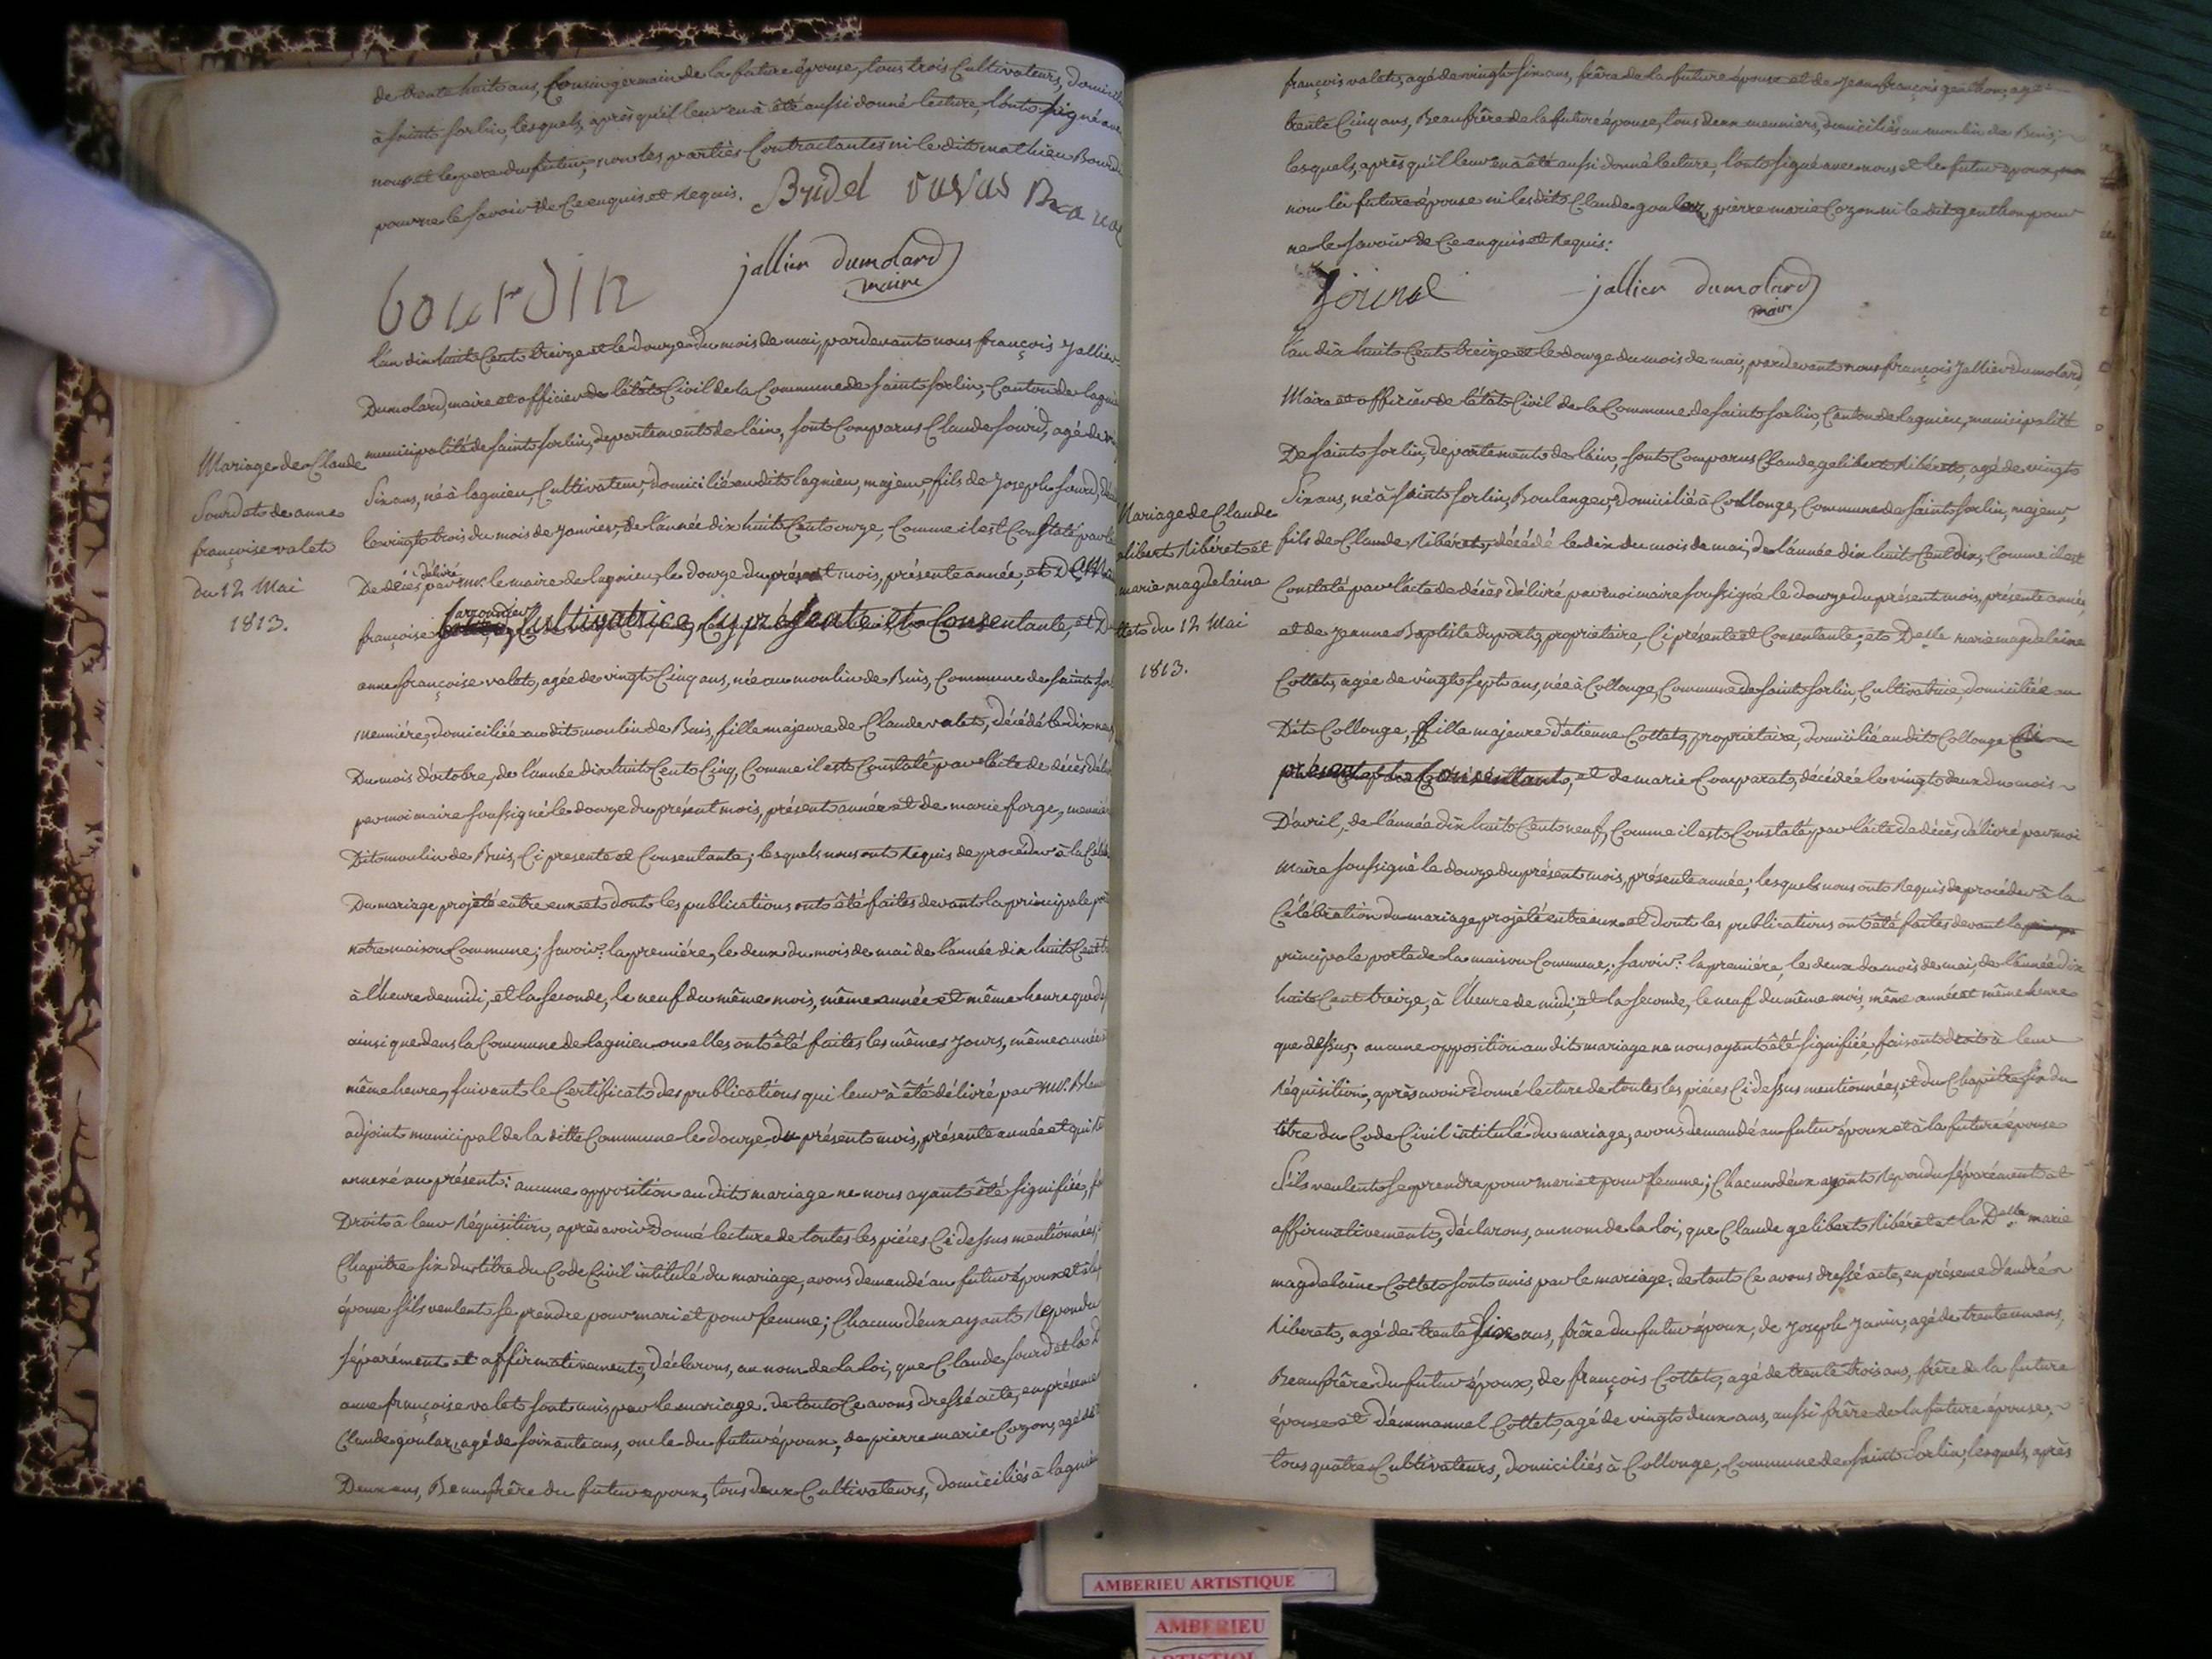 de trente huit ans, Cousin germain de la future épouse, tous trois Cultivateurs, domiciliés
à saint sorlin, lesquels, après qu'il leur en à été aussi donné lecture, l'ont signé avec
nous et le pere du futur, non les parties Contractantes ni le dit mathieu Bourdin
pour ne le savoir de Ce enquis et Requis. Bridel
bourdin
jallier dumolard
maire
Mariage de Claude
Sourd et de anne
françoise valet
du 12 Mai
1813.
l'an dix huit Cent treize et le douze du mois de mai, pardevant nous françois Jallier
Dumolard, maire et officier de l'état Civil de la Commune de saint sorlin, Canton de lagnieu
municipalité de saint sorlin, departement de l'ain, sont Comparus Claude sourd, agé de
Six ans, né à lagnieu, Cultivateur, domicilié au dit lagnieu, majeur, fils de Joseph sourd,
le vingt trois du mois de Janvier, de l'année dix huit Cent onze, Comme il est Constaté par
De décès, délivré par mr. le maire de lagnieu, le douze du présent mois, présente année, et De
françoise Cultivatrice, Cy présente et Consentante, et
anne françoise valet, agée de vingt Cinq ans, née au moulin de Buis, Commune de saint sor
meunière, domiciliée au dit moulin de Buis, fille majeure de Claude valet, décédé le dix neuf
Du mois d'octobre, de l'année dix huit Cent Cinq, Comme il est Constaté par l'acte de décès
par moi maire soussigné le douze du présent mois, présente année et de marie forge, meunière
Dit moulin de Buis, Ci presente et Consentante; lesquels nous ont Requis de procéder à la
Du mariage projeté entre eux et dont les publications ont été faites devant la principale
notre maison Commune; savoir: la première, le deux du mois de mai de l'année dix huit Cent
à l'heure de midi, et la seconde, le neuf du même mois, même année et même heure que
ainsi que dans la Commune de lagnieu ou elles ont été faites les mêmes Jours, même année
même heure, suivant le Certificat des publications qui leur à été délivré par mr.
adjoint municipal de la ditte Commune le douze du présent mois, présente année et qui
annexé au présent: aucune opposition au dit mariage ne nous ayant été signifiée,
Droit à leur Réquisition, après avoir donné lecture de toutes les pièces Ci dessus mentionnées,
Chapitre six du titre du Code Civil intitulé du mariage, avons demandé au futur époux et à la
épouse s'ils veulent se prendre pour mari et pour femme; Chacun d'eux ayant Répondu
séparément et affirmativement, déclarons, au nom de la loi, que Claude sourd et la
anne françoise valet sont unis par le mariage. de tout Ce avons dressé acte, en présence
Claude goulaz, agé de soixante ans, oncle du futur époux, de pierre marie Cozon, agé de
Deux ans, Beau frère du futur époux, tous deux Cultivateurs, domiciliés à lagnieu
françois valet, agé de vingt six ans, frère de la future épouse et de Jean françois genthon, agé
trente Cinq ans, Beau frère de la future épouse, tous deux meuniers, domiciliés au moulin de Buis,
lesquels, après qu'il leur en à été aussi donné lecture, l'ont signé avec nous et le futur époux,
non la future épouse ni les dits Claude goulaz, pierre marie Cozon ni le dit genthon pour
ne le savoir de Ce enquis et Requis:
jallier dumolard
maire
Mariage de Claude
galibert Ribéret et
marie magdelaine
Cottet du 12 Mai
1813.
l'an dix huit Cent treize et le douze du mois de mai, pardevant nous françois Jallier Dumolard,
Maire et officier de l'état Civil de la Commune de saint sorlin, Canton de lagnieu, municipalité
De saint sorlin, departement de l'ain, sont Comparus Claude galibert Ribéret, agé de vingt
Six ans, né à saint sorlin, Boulanger, domicilié à Collonge, Commune de saint sorlin, majeur,
fils de Claude Ribéret, décédé le dix du mois de mai, de l'année dix huit Cent dix, Comme il est
Constaté par l'acte de décès délivré par moi maire soussigné le douze du présent mois, présente année,
et de Jeanne Baptiste duport, propriétaire, Ci présente et Consentante; et Delle marie magdelaine
Cottet, agée de vingt sept ans, née à Collonge, Commune de saint sorlin, Cultivatrice, domiciliée au
Dit Collonge, fille majeure d'etienne Cottet, propriétaire, domicilié au dit Collonge Ci
présent et Consentant, et de marie Comparat, décédée le vingt deux du mois
D'avril, de l'année dix huit Cent neuf, Comme il est Constaté par l'acte de décès délivré par moi
Maire soussigné le douze du présent mois, présente année; lesquels nous ont Requis de procéder à la
Célébration du mariage projeté entre eux et dont les publications ont été faites devant la
principale porte de la maison Commune; savoir: la première, le deux du mois de mai, de l'année dix
huit Cent treize, à l'heure de midi; et la seconde, le neuf du même mois, même année et même heure
que dessus; aucune opposition au dit mariage ne nous ayant été signifiée, faisant droit à leur
Réquisition, après avoir donné lecture de toutes les pièces Ci dessus mentionnées, et du Chapitre six du
titre du Code Civil intitulé du mariage, avons demandé au futur époux et à la future épouse
S'ils veulent se prendre pour mari et pour femme; Chacun d'eux ayant Répondu séparément et
affirmativement, déclarons, au nom de la loi, que Claude galibert Ribéret et la Delle marie
magdelaine Cottet sont unis par le mariage. de tout Ce avons dressé acte, en présence d'andré
Riberet, agé de trente six ans, frère du futur époux, de Joseph Janin, agé de trente un ans,
Beau frère du futur époux, de françois Cottet, agé de trente trois ans, frère de la future
épouse et d'emmanuel Cottet, agé de vingt deux ans, aussi frère de la future épouse,
tous quatre Cultivateurs, domiciliés à Collonge, Commune de saint Sorlin, lesquels, après
AMBERIEU ARTISTIQUE
AMBERIEU
ARTISTIQUE